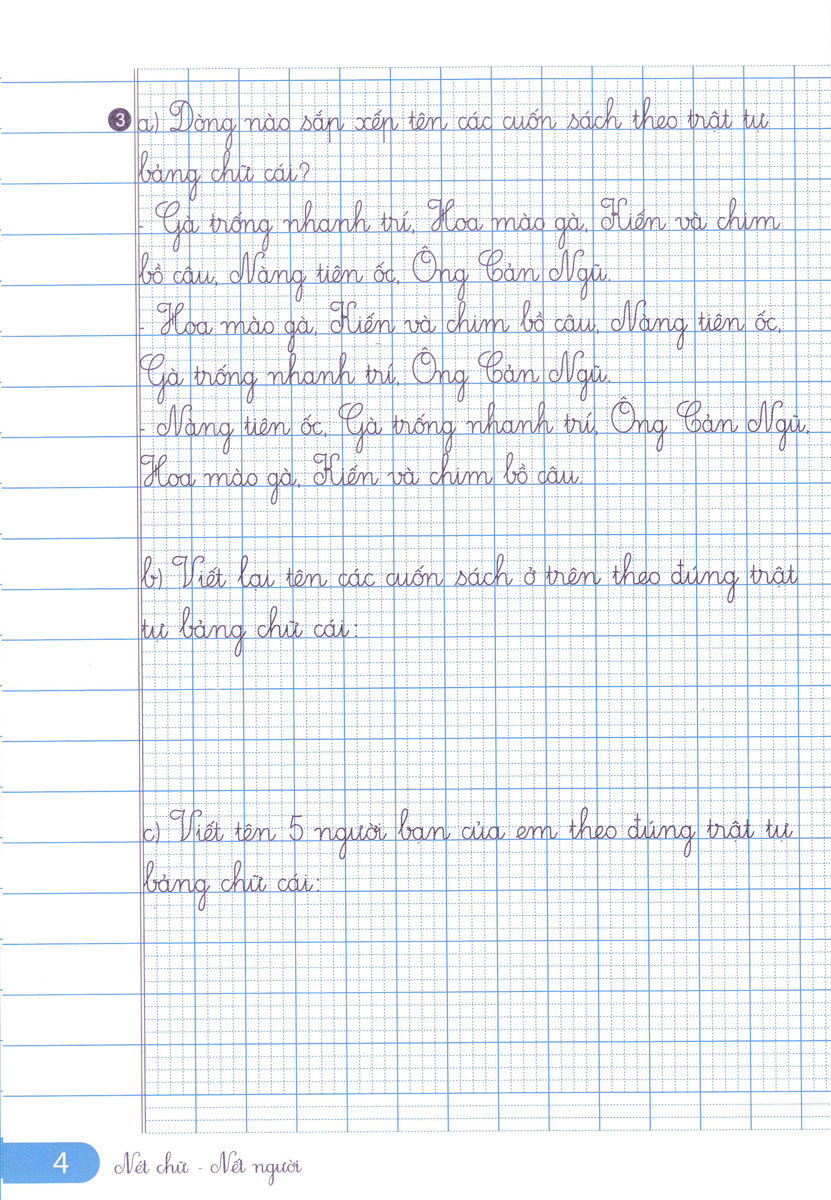 3 a) Dòng nào sắp xếp tên các cuốn sách theo trật tự
bảng chữ cái?
- Gà trống nhanh trí, Hoa mào gà, Kiến và chim
bồ câu, Nàng tiên ốc, Ông Cản Ngũ.
- Hoa mào gà, Kiến và chim bồ câu, Nàng tiên ốc,
Gà trống nhanh trí, Ông Cản Ngũ.
- Nàng tiên ốc, Gà trống nhanh trí, Ông Cản Ngũ,
Hoa mào gà, Kiến và chim bồ câu.
b) Viết lại tên các cuốn sách ở trên theo đúng trật
tự bảng chữ cái:
c) Viết tên 5 người bạn của em theo đúng trật tự
bảng chữ cái:
4 Nét chữ - Nết người